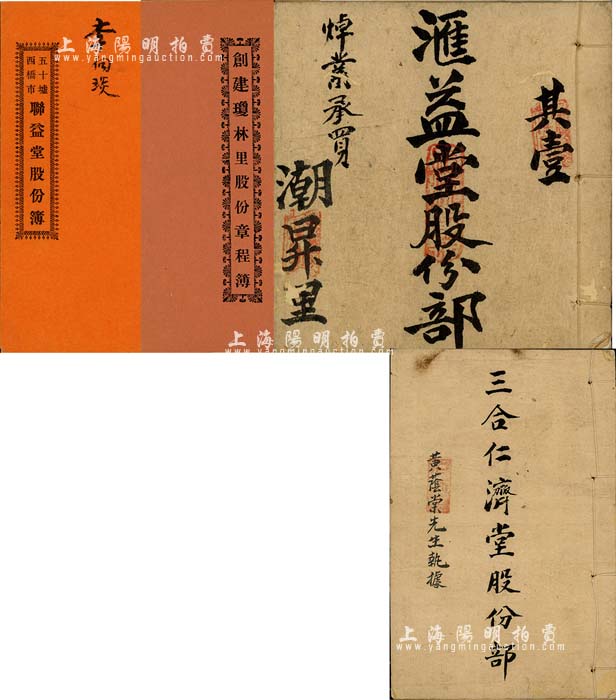 李
五十墟
西橋市
聯益堂股份簿
創建瓊林里股份章程簿
其壹
滙益堂股份部
焯業承買
潮昇里
三合仁濟堂股份部
黃蔭棠先生執據
上海陽明拍賣
www.yangmingauction.com
上海陽明拍賣
www.yangmingauction.com
上海陽明拍賣
www.yangmingauction.com